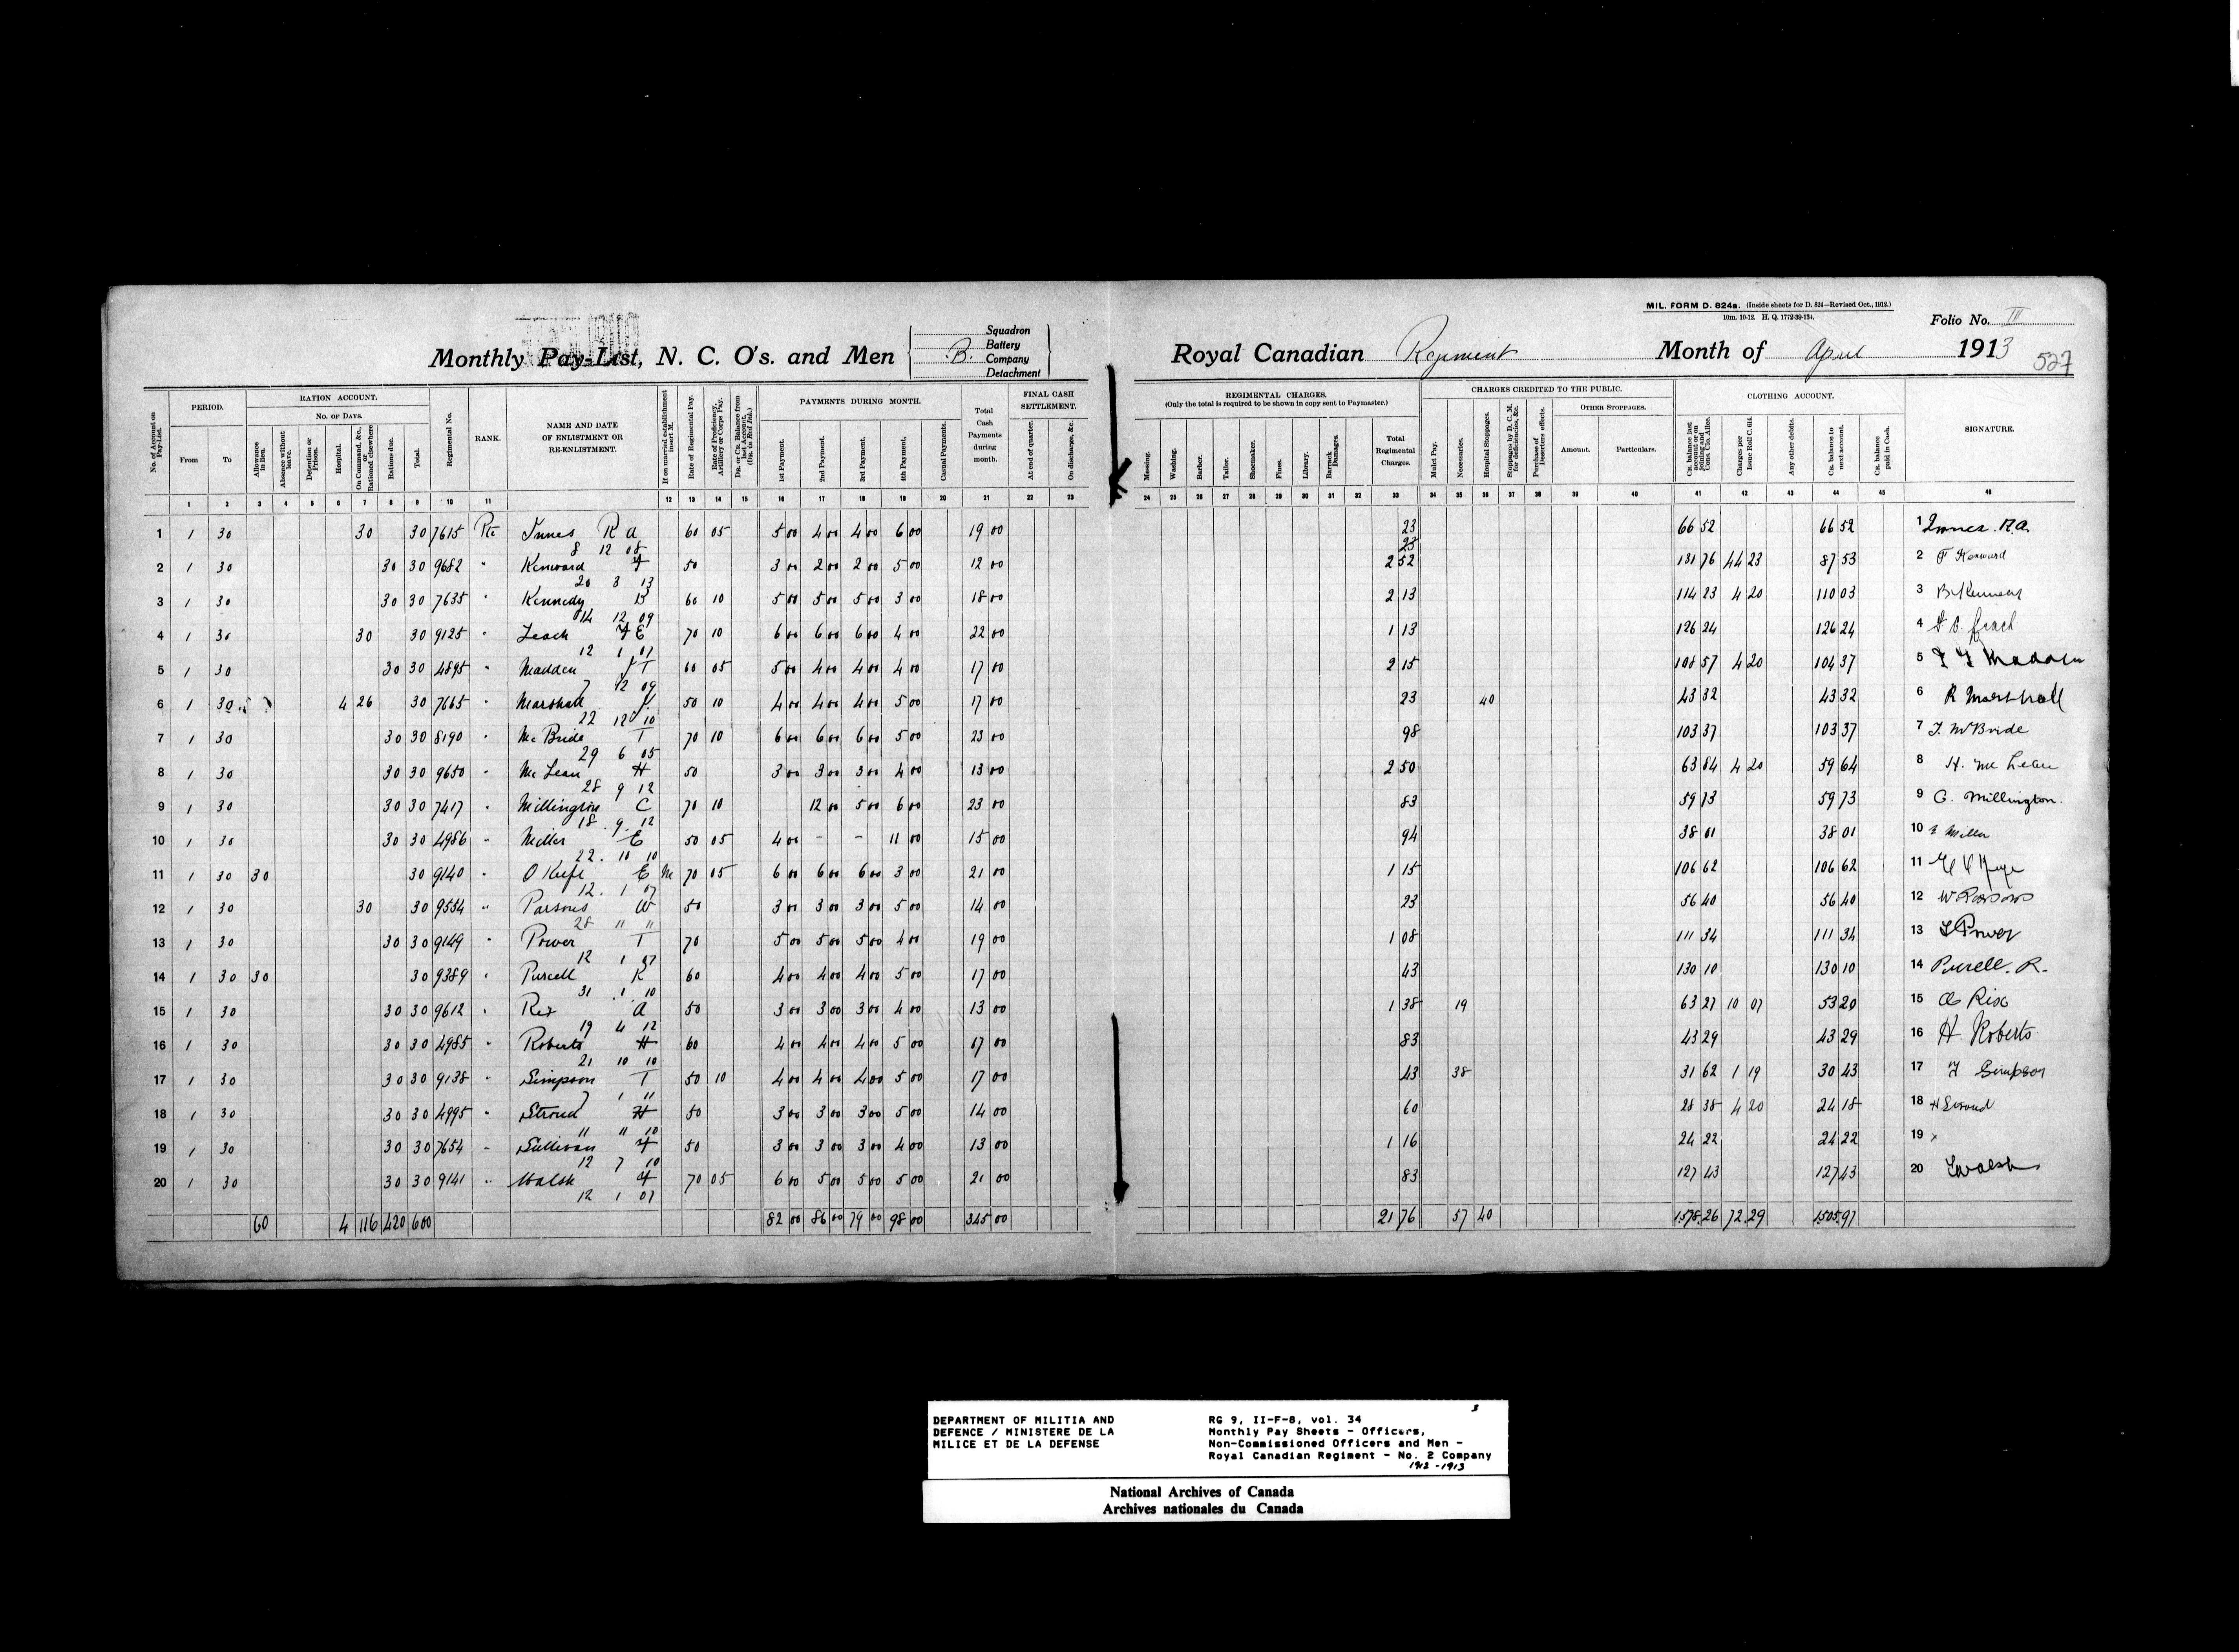 MIL. FORM D. 824a. (Inside sheets for D. 824—Revised Oct., 1912.)
10m. 10-12. H. Q. 1772-39-134.
Folio No. III
Monthly Pay-List, N. C. O's. and Men
Squadron
Battery
B. Company
Detachment
Royal Canadian Regiment Month of April 1913
527
No. of Account on Pay-List.
PERIOD.
From
To
RATION ACCOUNT.
No. of Days.
Allowance in lieu.
Absence without leave.
Detention or Prison.
Hospital.
On Command, &c., or Rationed elsewhere
Rations due.
Total.
Regimental No.
RANK.
NAME AND DATE OF ENLISTMENT OR RE-ENLISTMENT.
If on married establishment insert M.
Rate of Regimental Pay.
Rate of Proficiency, Artillery or Corps Pay.
Dr. or Cr. Balance from last Account. (Dr. in Red Ink.)
PAYMENTS DURING MONTH.
1st Payment.
2nd Payment.
3rd Payment.
4th Payment.
Casual Payments.
Total Cash Payments during month.
FINAL CASH SETTLEMENT.
At end of quarter.
On discharge, &c.
REGIMENTAL CHARGES.
(Only the total is required to be shown in copy sent to Paymaster.)
Messing.
Washing.
Barber.
Tailor.
Shoemaker.
Fines.
Library.
Barrack Damages.
Total Regimental Charges.
CHARGES CREDITED TO THE PUBLIC.
Mulct Pay.
Necessaries.
Hospital Stoppages.
Stoppages by D. C. M. for deficiencies, &c.
Purchase of Deserters effects.
OTHER STOPPAGES.
Amount.
Particulars.
CLOTHING ACCOUNT.
Cr. balance last account or on joining and Cons. Clo. Allce.
Charges per Issue Roll C. 614.
Any other debits.
Cr. balance to next account.
Cr. balance paid in Cash.
SIGNATURE.
1 2 3 4 5 6 7 8 9 10 11 12 13 14 15 16 17 18 19 20 21 22 23 24 25 26 27 28 29 30 31 32 33 34 35 36 37 38 39 40 41 42 43 44 45 46
1 1 30 30 30 7615 Pte Innes R A 60 05 5 00 4 00 4 00 6 00 19 00 23 66 52 66 52 1 Innes. R.A.
8 12 08 23
2 1 30 30 30 9682 " Kenward F 50 3 00 2 00 2 00 5 00 12 00 2 52 131 76 44 23 87 53 2 F Kenward
20 3 13
3 1 30 30 30 7635 " Kennedy B 60 10 5 00 5 00 5 00 3 00 18 00 2 13 114 23 4 20 110 03 3
14 12 09
4 1 30 30 30 9125 " Leach F E 70 10 6 00 6 00 6 00 4 00 22 00 1 13 126 24 126 24 4
12 1 07
5 1 30 30 30 4895 " Madden J T 60 05 5 00 4 00 4 00 4 00 17 00 2 15 108 57 4 20 104 37 5 Madden
7 12 09
6 1 30 4 26 30 7665 " Marshall 50 10 4 00 4 00 4 00 5 00 17 00 23 40 43 32 43 32 6 R Marshall
22 12 10
7 1 30 30 30 8190 " McBride T 70 10 6 00 6 00 6 00 5 00 23 00 98 103 37 103 37 7 T. McBride
29 6 05
8 1 30 30 30 9650 " McLean H 50 3 00 3 00 3 00 4 00 13 00 2 50 63 84 4 20 59 64 8 H. McLean
28 9 12
9 1 30 30 30 7417 " Millington C 70 10 12 00 5 00 6 00 23 00 83 59 73 59 73 9 C. Millington.
18. 9. 12
10 1 30 30 30 4986 " Miller E 50 05 4 00 - - 11 00 15 00 94 38 01 38 01 10 E Miller
22. 10 10
11 1 30 30 30 9140 " O Keefe E M 70 05 6 00 6 00 6 00 3 00 21 00 1 15 106 62 106 62 11
12. 1 07
12 1 30 30 30 9554 " Parsons W 50 3 00 3 00 3 00 5 00 14 00 23 56 40 56 40 12 W Parsons
28 11 11
13 1 30 30 30 9149 " Power T 70 5 00 5 00 5 00 4 00 19 00 1 08 111 34 111 34 13 T Power
12 1 07
14 1 30 30 30 9389 " Purcell R 60 4 00 4 00 4 00 5 00 17 00 43 130 10 130 10 14 Purcell. R.
31 1 10
15 1 30 30 30 9612 " Rix A 50 3 00 3 00 3 00 4 00 13 00 1 38 19 63 27 10 07 53 20 15 A Rix
19 4 12
16 1 30 30 30 4985 " Roberts H 60 4 00 4 00 4 00 5 00 17 00 83 43 29 43 29 16 H. Roberts
21 10 10
17 1 30 30 30 9138 " Simpson T 50 10 4 00 4 00 4 00 5 00 17 00 43 38 31 62 1 19 30 43 17 T Simpson
7 1 11
18 1 30 30 30 4995 " Stroud H 50 3 00 3 00 3 00 5 00 14 00 60 28 38 4 20 24 18 18 H Stroud
11 11 10
19 1 30 30 30 7654 " Sullivan F 50 3 00 3 00 3 00 4 00 13 00 1 16 24 22 24 22 19 x
12 7 10
20 1 30 30 30 9141 " Walsh F 70 05 6 00 5 00 5 00 5 00 21 00 83 127 43 127 43 20 F Walsh
12 1 07
60 4 116 420 600 82 00 86 00 79 00 98 00 345 00 21 76 57 40 1578.26 72.29 1505.97
3
DEPARTMENT OF MILITIA AND
DEFENCE / MINISTERE DE LA
MILICE ET DE LA DEFENSE
RG 9, II-F-8, vol. 34
Monthly Pay Sheets - Officers,
Non-Commissioned Officers and Men -
Royal Canadian Regiment - No. 2 Company
1912 - 1913
National Archives of Canada
Archives nationales du Canada